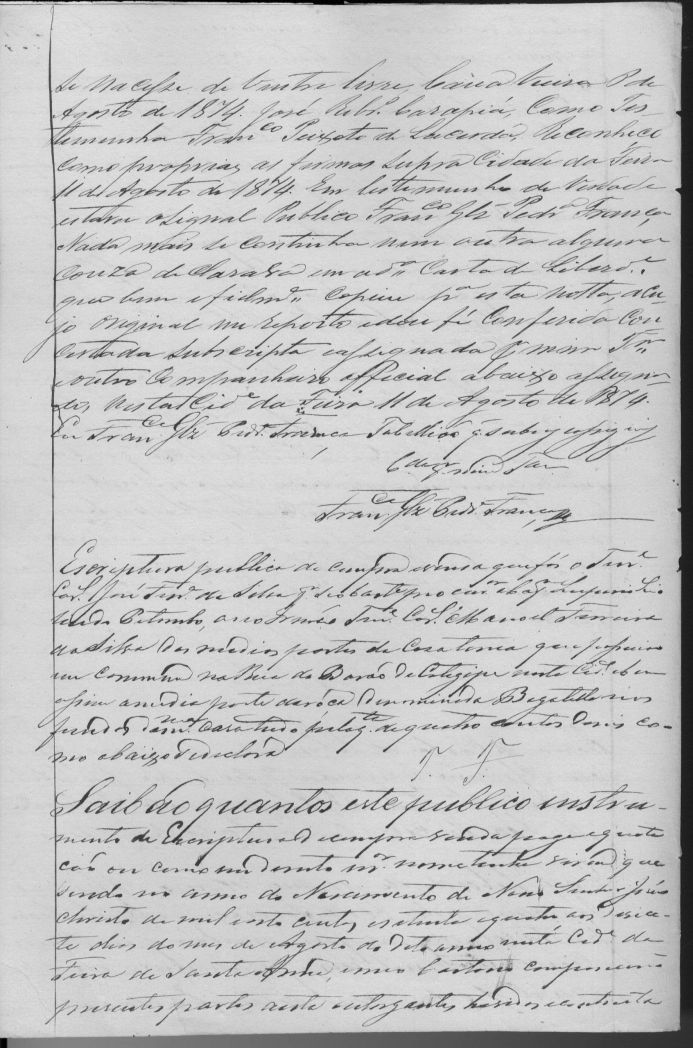 se nacesse de Ventre livre,
Agosto de 1874. José Ribr.º Carapiá, Como Tes-
timunha Fran.co Peixoto de Lacerda, Reconheço
como proprias as firmas supra Cidade da Feira
11 de Agosto de 1874. Em testimunho de Verdade
estava o Signal Publico Fran.co Glz Pedr.ª França,
Nada mais se continha nem outra alguma
couza declarava em a d.ª Carta de Liberd.e
que bem e fielm.e copiei p.ª esta notta, a cu-
jo original me reporto e dou fé Conferida Con-
certada subscripta e assignada p.r mim Tam.
e outro Companheiro official abaixo assigna-
do, nesta Cid.e da Feira 11 de Agosto de 1874.
Eu Fran.co Glz Pedr.ª França Tabellião q.
p.r mim Tam.
Fran.co Glz Pedr.ª França
Escriptura publica de compra e venda que fás o Ten.e
Cor.el José de Silva
a seo Irmão Ten.e Cor.el Manoel Ferreira
da Silva das medias partes da Casa terrea que possuem
em commum na Rua do Barão de Cotegipe nesta Cid.e e bem
assim a media parte da róca denominada nos
fundos da m.ma casa tudo pela q.tia de quatro contos de reis co-
mo abaixo se declara
Saibão quantos este publico instru-
mento de Escriptura de compra e venda paga e quita-
ção ou como em direito m.r nome tenha virem que
sendo no anno do Nascimento de Nosso Senhor Jesús
Christo de mil oito centos e setenta e quatro aos desese-
te dias do mes de Agosto do dito anno nesta Cid.e da
Feira de Santa Anna, em meo Cartorio comparecerão
presentes partes a esta outorgantes havidos e contracta